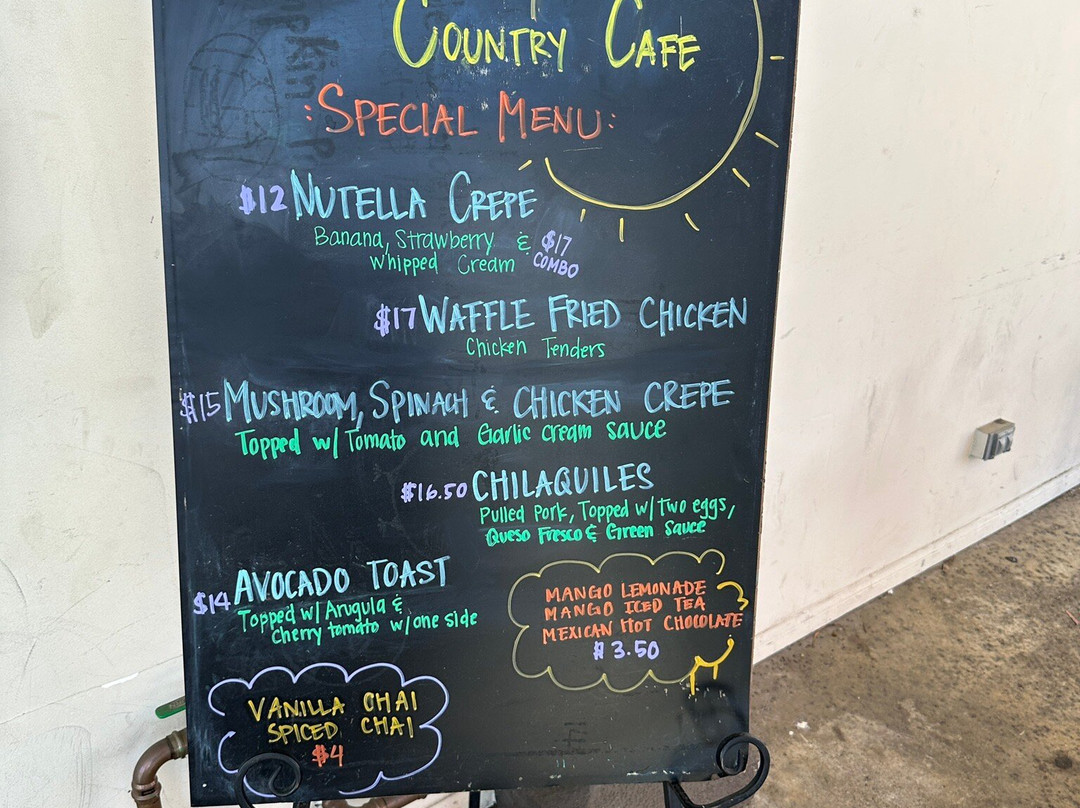 COUNTRY CAFE
:SPECIAL MENU:
$12 NUTELLA CREPE
Banana, Strawberry &
Whipped Cream
$17
COMBO
$17 WAFFLE FRIED CHICKEN
Chicken Tenders
$15 MUSHROOM, SPINACH & CHICKEN CREPE
Topped w/ Tomato and Garlic cream sauce
$16.50 CHILAQUILES
Pulled Pork, Topped w/ two eggs,
Queso Fresco & Green Sauce
$14 AVOCADO TOAST
Topped w/ Arugula &
Cherry tomato w/one side
MANGO LEMONADE
MANGO ICED TEA
MEXICAN HOT CHOCOLATE
$3.50
VANILLA CHAI
SPICED CHAI
$4